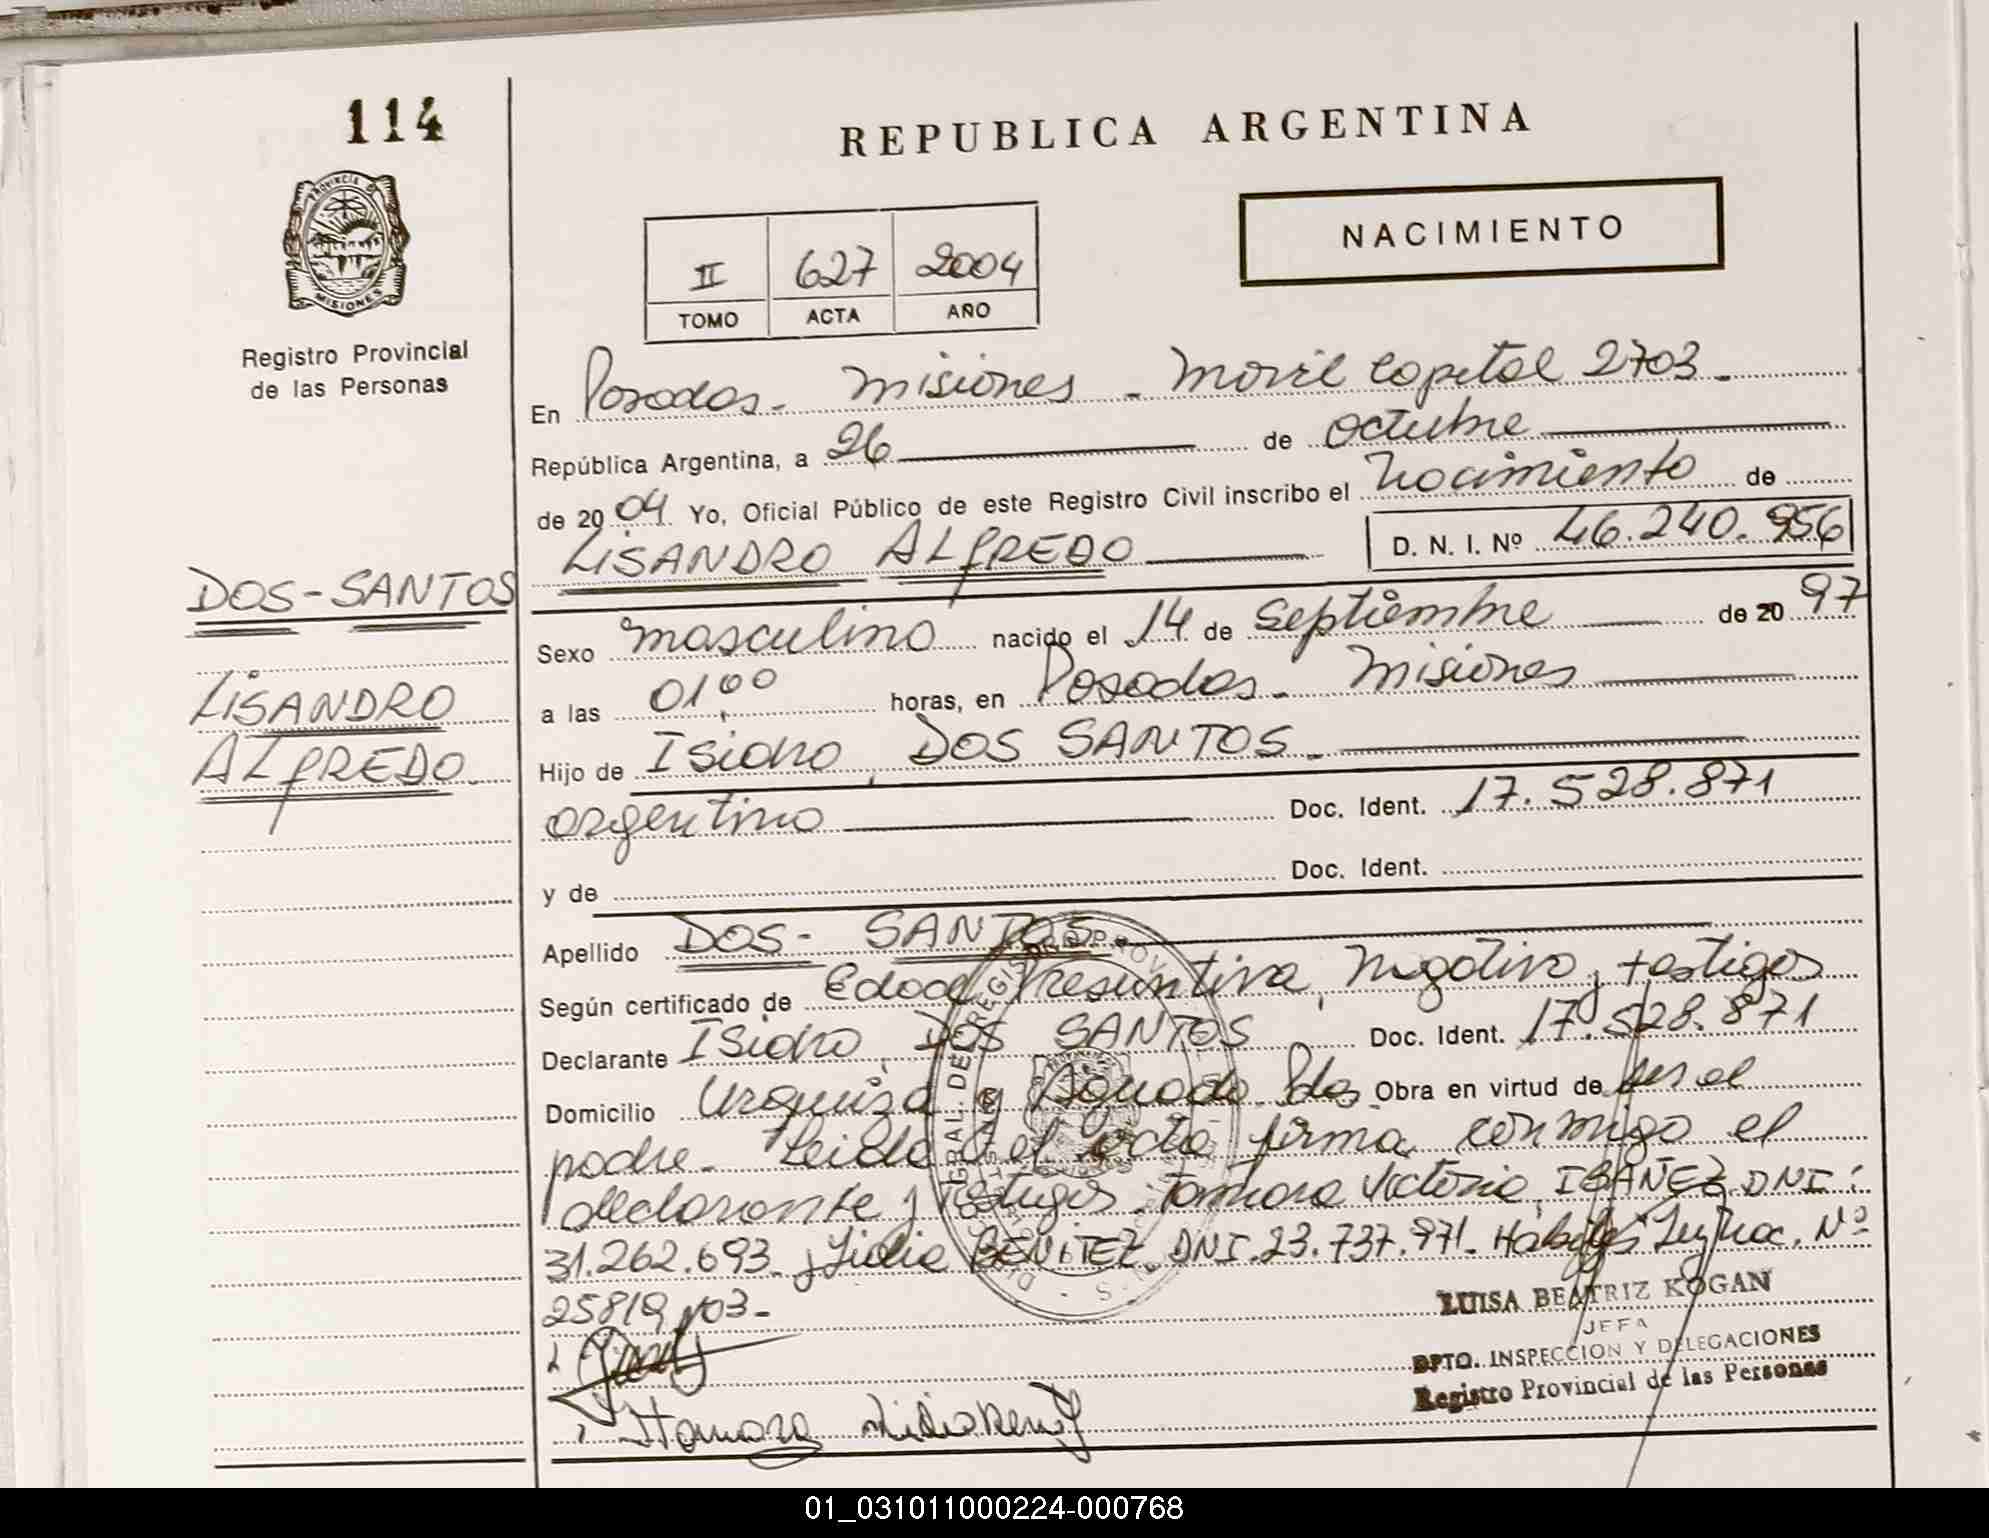 114
REPUBLICA ARGENTINA
PROVINCIA DE
MISIONES
NACIMIENTO
II 627 2004
TOMO ACTA AÑO
Registro Provincial
de las Personas
En Posadas - Misiones - Movil Capital 2703 -
República Argentina, a 26 de Octubre
de 2004 Yo, Oficial Público de este Registro Civil inscribo el Nacimiento de
LISANDRO ALFREDO D. N. I. Nº 46.240.956
DOS-SANTOS
LISANDRO
ALFREDO
Sexo masculino nacido el 14 de Septiembre de 20 97
a las 01,00 horas, en Posadas - Misiones
Hijo de Isidro, DOS SANTOS -
argentino Doc. Ident. 17.528.871
y de Doc. Ident.
Apellido DOS - SANTOS -
Según certificado de Edad Presuntiva, Negativo, testigos
Declarante Isidro, DOS SANTOS Doc. Ident. 17.528.871
Domicilio Urquiza y Aguado Pdas Obra en virtud de ser el
padre - Leida el acta firma conmigo el
declarante y testigos: Tamara Victoria, IBAÑEZ DNI:
31.262.693 - y Lidia BENITEZ DNI. 23.737.971 - Hábiles Ley Nac. Nº
25819/03 -
LUISA BEATRIZ KOGAN
JEFA
DPTO. INSPECCION Y DELEGACIONES
Registro Provincial de las Personas
01_031011000224-000768